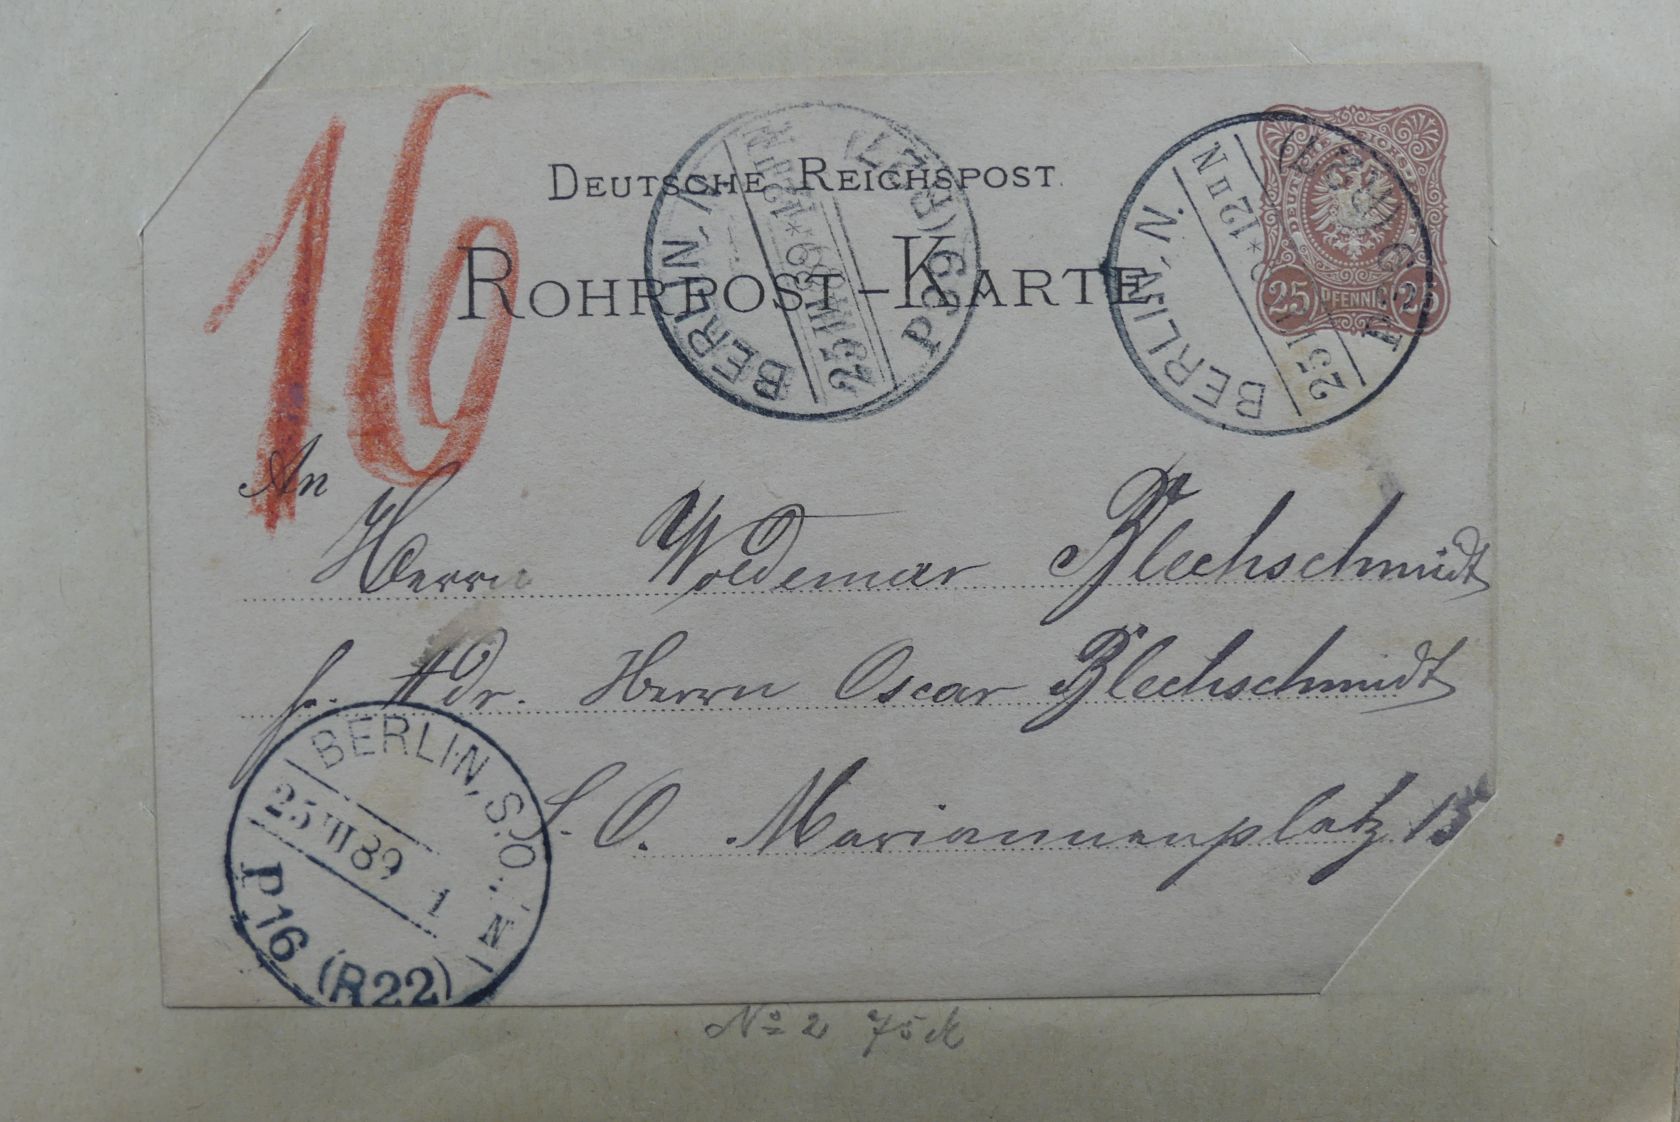 16
DEUTSCHE REICHSPOST.
ROHRPOST-KARTE
BERLIN, N.
25 III 89 * 12
P39 (R27)
BERLIN, N.
25 12 II N
DEUTSCHE REICHSPOST
25 PFENNIG 25
An
Herrn Woldemar Blechschmidt
p. Adr. Herrn Oscar Blechschmidt
S. O. Mariannenplatz 15
BERLIN, S.O.
25 III 89 1 N
P16 (R22)
No 2 75 M